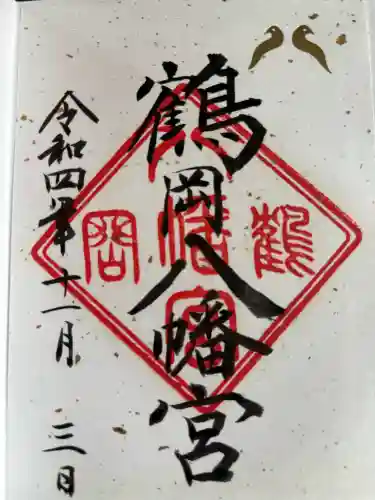 鶴岡八幡宮
令和四年十一月三日
鶴
岡
八幡宮